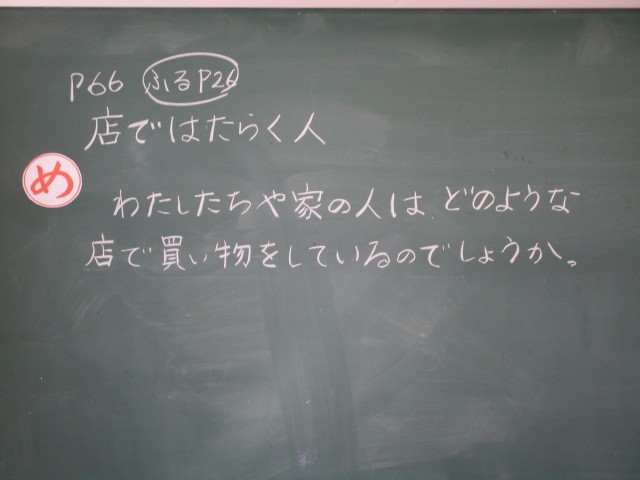 P66 ふるP26
店ではたらく人
め
わたしたちや家の人は、どのような
店で買い物をしているのでしょうか。